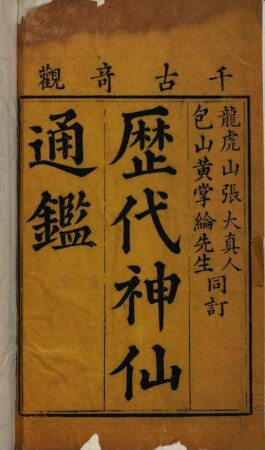 千古奇觀
龍虎山張大真人
包山黄掌綸先生同訂
歷代神仙
通鑑